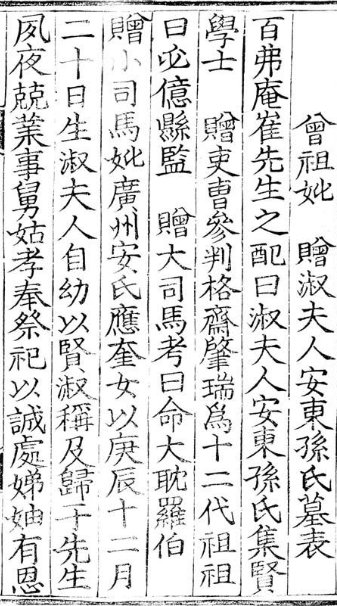 曾祖妣 贈淑夫人安東孫氏墓表
百弗庵崔先生之配曰淑夫人安東孫氏集賢
學士 贈吏曹參判格齋肇瑞爲十二代祖祖
曰必億縣監 贈大司馬考曰命大耽羅伯
贈小司馬妣廣州安氏應奎女以庚辰十二月
二十日生淑夫人自幼以賢淑稱及歸于先生
夙夜兢業事舅姑孝奉祭祀以誠處娣姒有恩